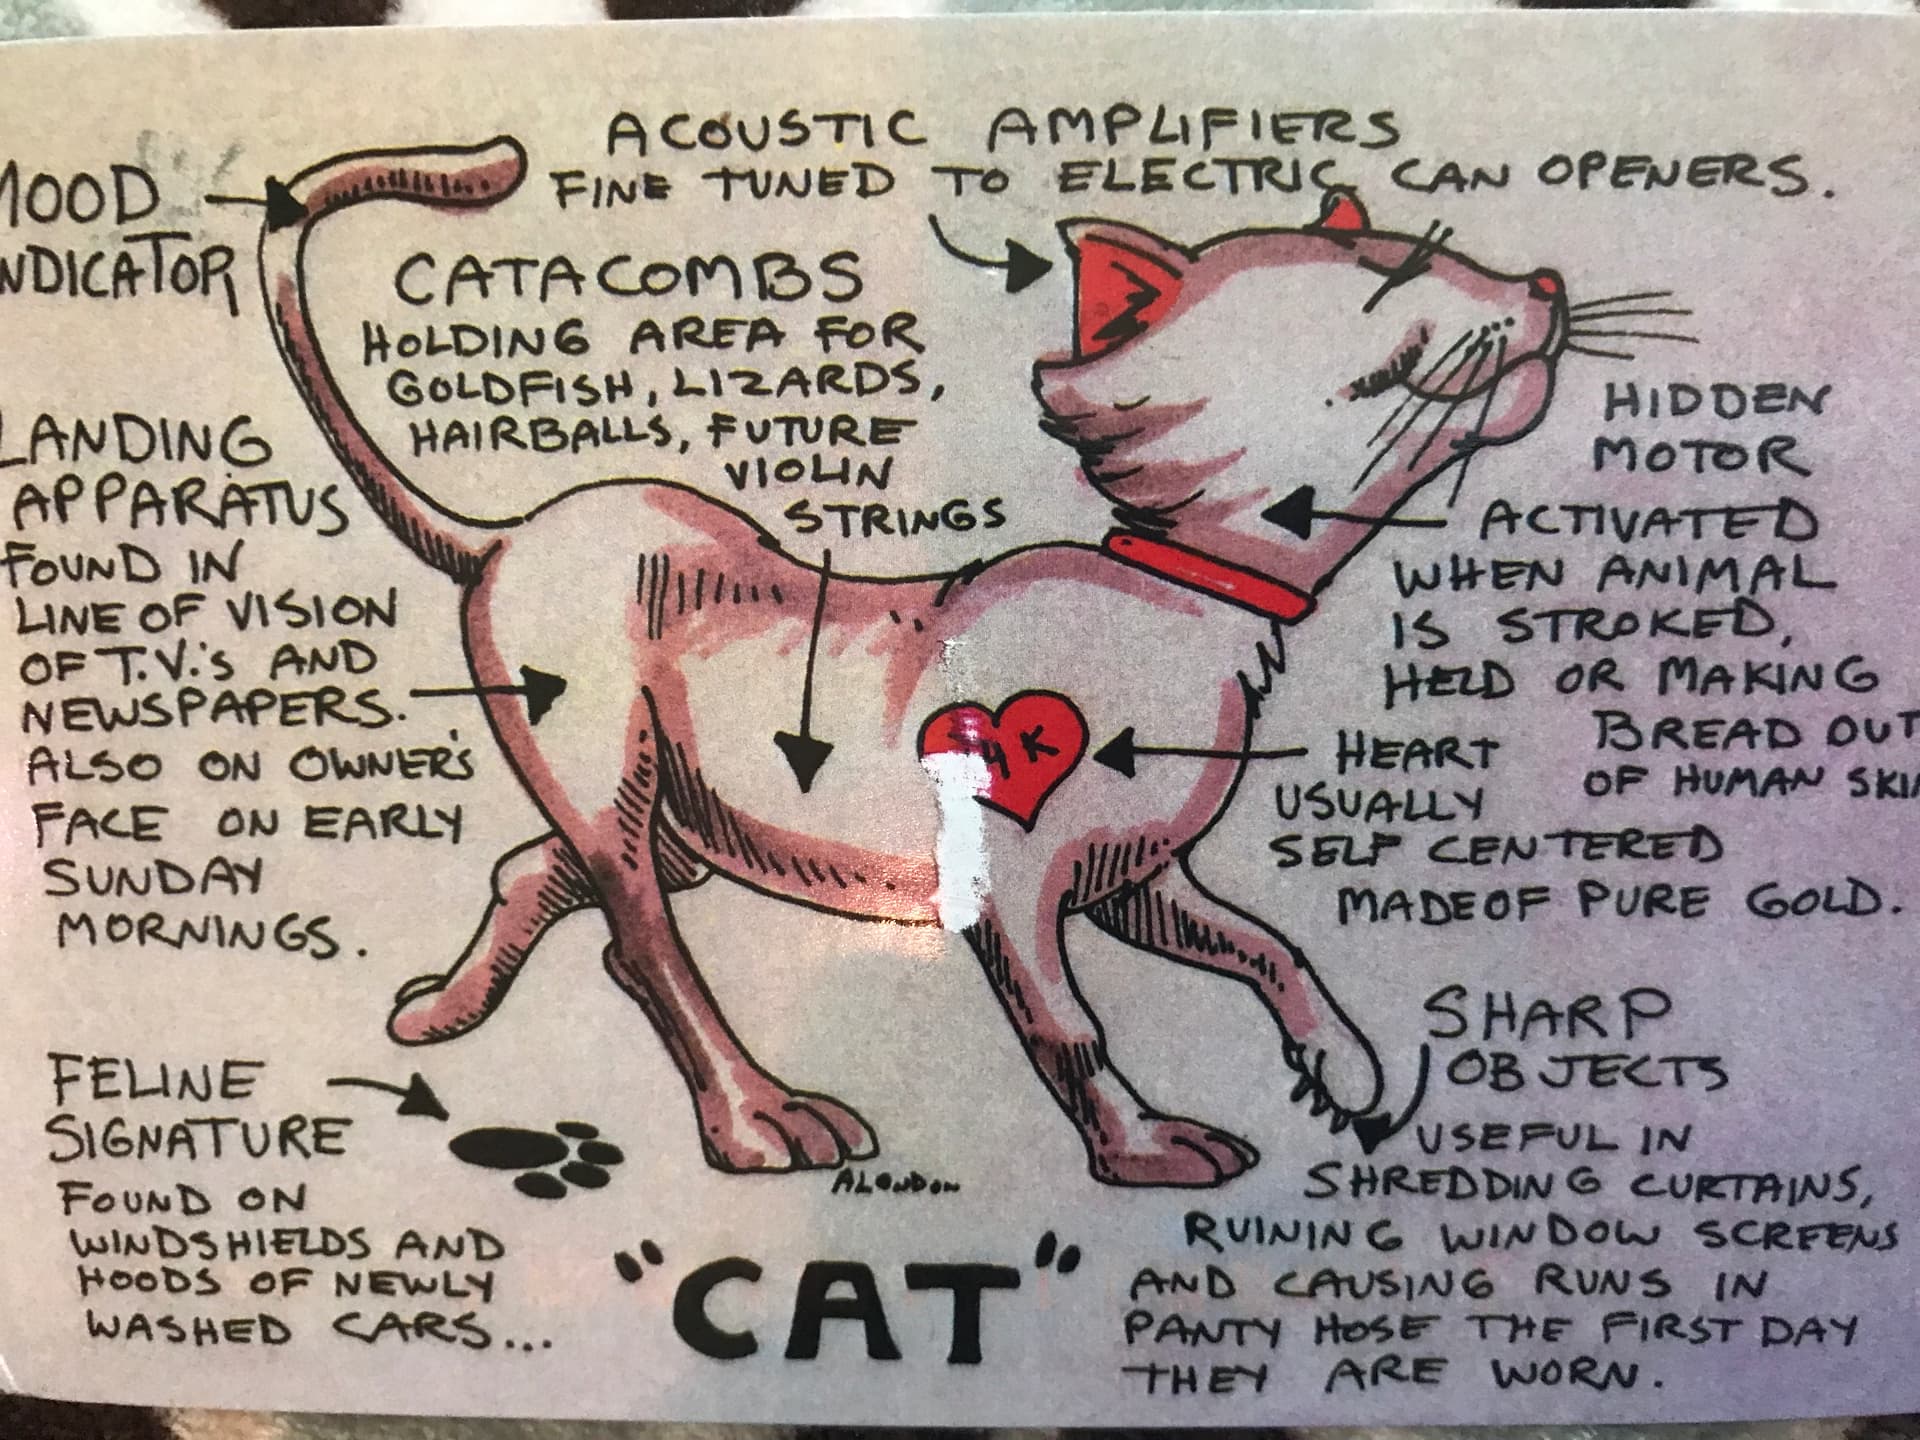 ACOUSTIC AMPLIFIERS
FINE TUNED TO ELECTRIC CAN OPENERS.
MOOD
INDICATOR
CATACOMBS
HOLDING AREA FOR
GOLDFISH, LIZARDS,
HAIRBALLS, FUTURE
VIOLIN
STRINGS
LANDING
APPARATUS
FOUND IN
LINE OF VISION
OF T.V.'S AND
NEWSPAPERS.
ALSO ON OWNER'S
FACE ON EARLY
SUNDAY
MORNINGS.
HIDDEN
MOTOR
ACTIVATED
WHEN ANIMAL
IS STROKED,
HELD OR MAKING
BREAD OUT
OF HUMAN SKIN
K
HEART
USUALLY
SELF CENTERED
MADE OF PURE GOLD.
FELINE
SIGNATURE
FOUND ON
WINDSHIELDS AND
HOODS OF NEWLY
WASHED CARS...
SHARP
OBJECTS
USEFUL IN
SHREDDING CURTAINS,
RUINING WINDOW SCREENS
AND CAUSING RUNS IN
PANTY HOSE THE FIRST DAY
THEY ARE WORN.
ALONDON
"CAT"